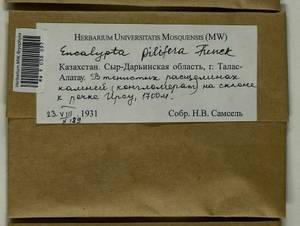 HERBARIUM UNIVERSITATIS MOSQUENSIS (MW)
Encalypta pilifera Funck
Казахстан. Сыр-Дарьинская область, г. Талас-
Алатау. В тенистых расщелинах
камней (конгломерат) на склоне
к речке Ирсу, 1700м.
23 VIII 1931 Собр. Н.В. Самсель
№ 189